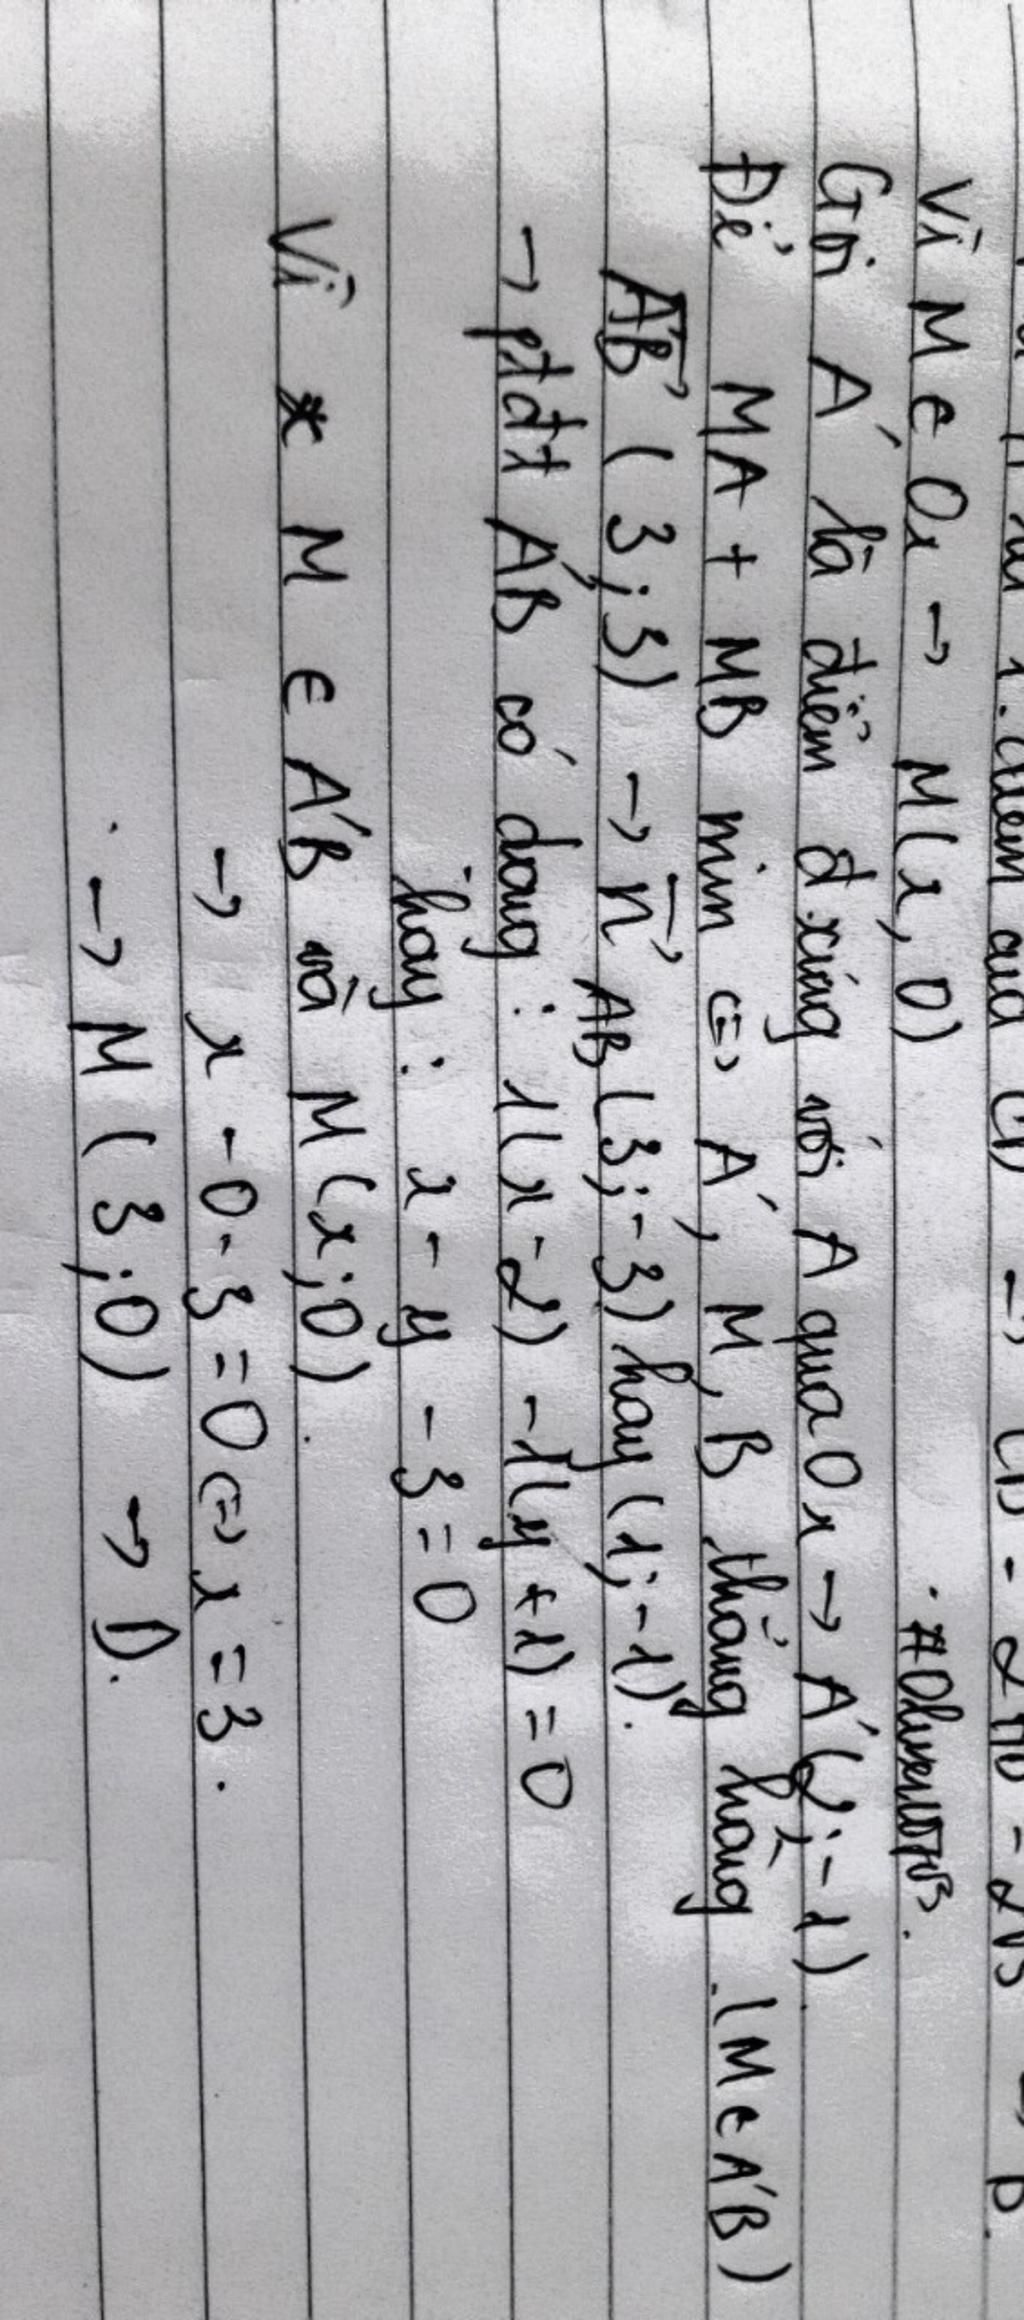 điểm qua
Vì M ∈ Ox → M(x,0)
Gọi A' là điểm đ xứng với A qua Ox → A'(2;-1)
Để MA + MB min ⇔ A', M, B thẳng hàng (M ∈ A'B)
A'B (3;3) → n A'B (3;-3) hay (1;-1).
→ ptđt A'B có dạng : 1(x-2) -1(y+1) = 0
hay : x - y - 3 = 0
Vì M ∈ A'B và M(x;0).
→ x - 0 - 3 = 0 ⇔ x = 3.
→ M (3;0) → D.